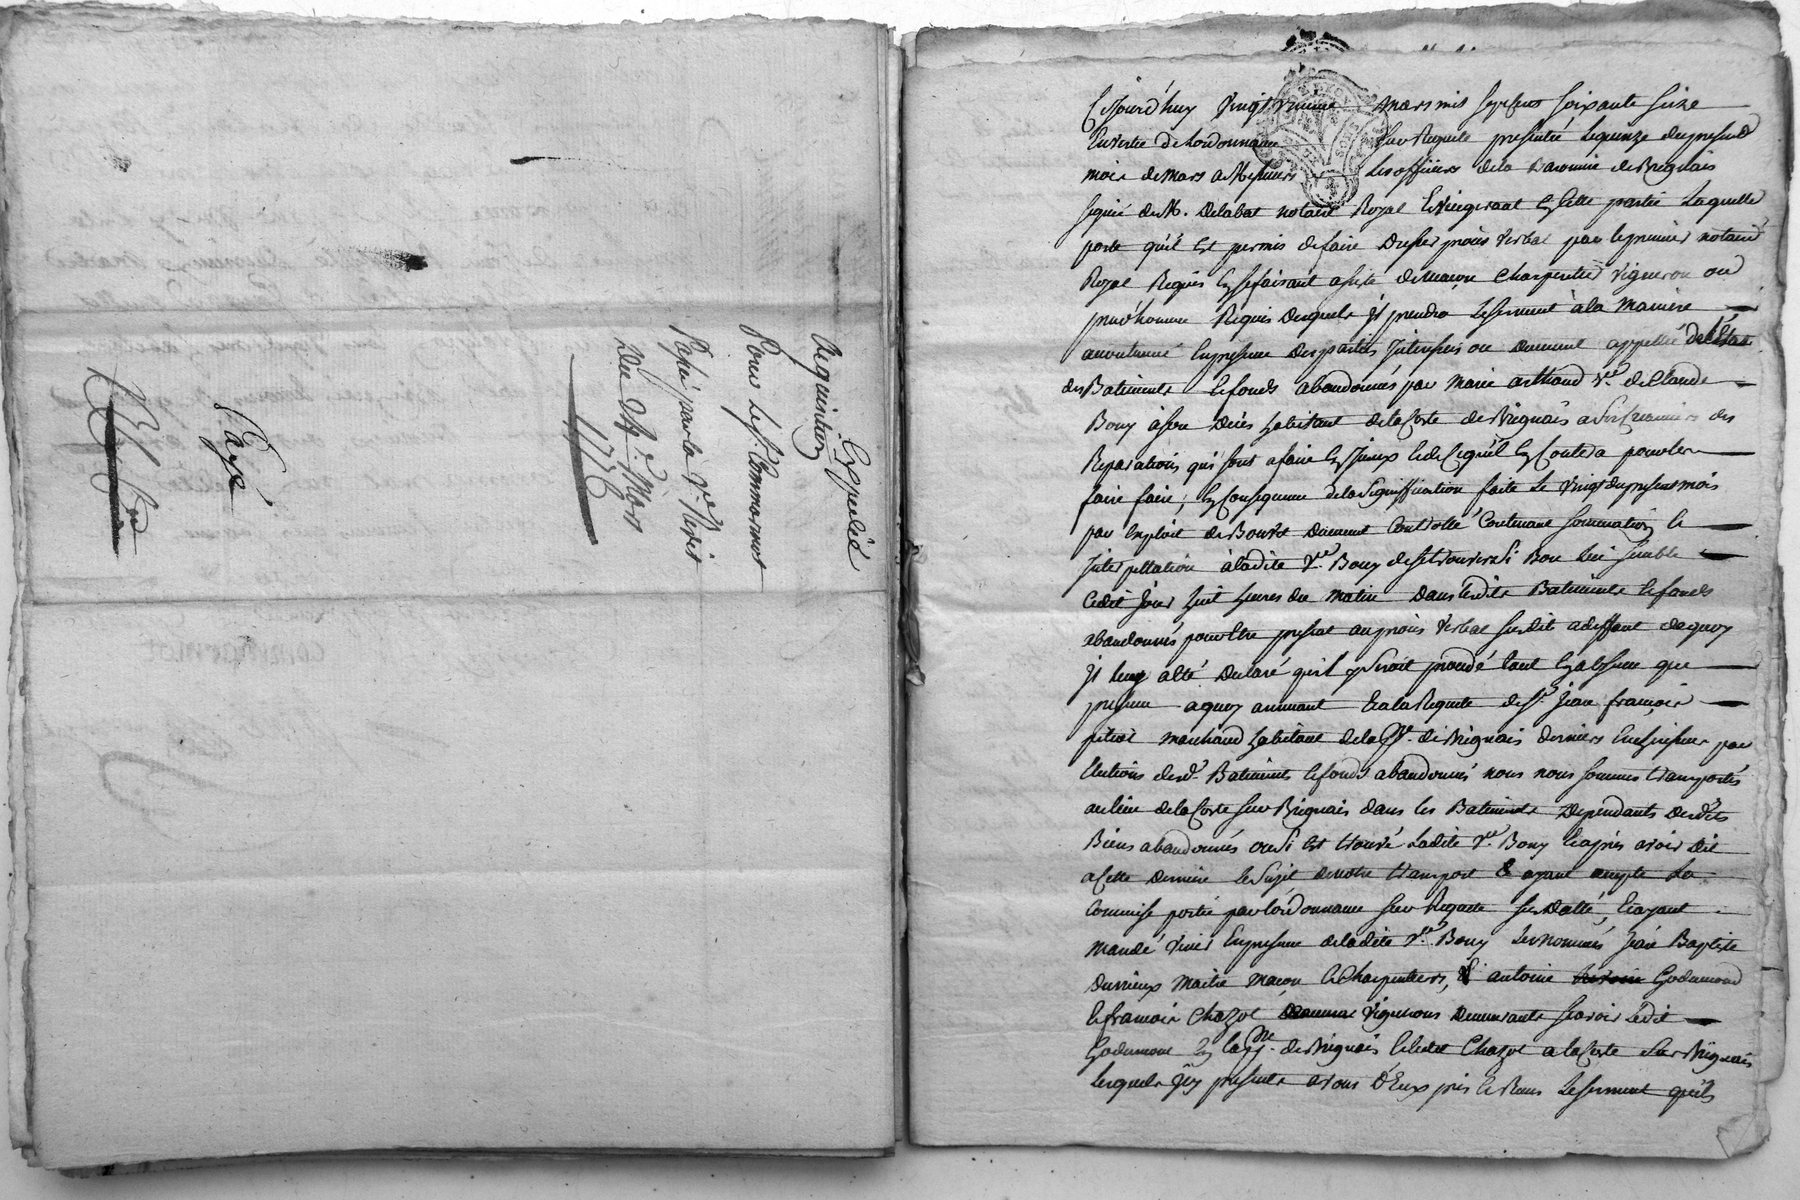 Expediée
Acquisition
Pour le Sr. Commarmot
Passé par la Ve.
Du 24e. Mars
1776
Payé
Cejourd'huy vingt mars mil sept cent soixante seize
En vertu de l'ordonnance sur Requete presentée le quinze du present
mois de Mars a Messieurs les officiers de la Baronnie de Brignais
signée de M. Delabat notaire Royal Exerçeant En cette partie Laquelle
porte qu'il Est permis de faire dresser procès verbal par le premier notaire
Royal Requis En se faisant assisté de macon Charpentier vigneron ou
prud'homme Requis desquels il prendra le serment à la maniere
accoutumée En presence des parties Interessées ou duement appellée de l'état
des Batiments & fonds abandonnés par Marie arthaud Ve. de Claude
Bouy à son decès habitant de la Coste de Brignais a ses Creanciers des
Reparations qui sont a faire En Iceux & de Ce qu'il En Coutera pour les
faire faire; En Consequence de la Signiffication faite le vingt du present mois
par Exploit de duement Controllé Contenant sommation &
Interpellation à ladite Ve. Bouy de se trouver si Bon lui semble
Cedit jour huit heures du matin dans lesdits Batiments & fonds
abandonnés pour Etre present au procès verbal susdit a deffaut de quoy
il luy a été declaré qu'il y seroit procedé tant En absence que
presence a quoy avenant Et a la Requete de Sr. Jean françois
marchand habitant de la psse. de Brignais dernier par
Elections desd. Batiments & fonds abandonnés nous nous sommes transportés
au lieu de la Coste sur Brignais dans les Batiments Dependants desdits
Biens abandonnés ou s'i est trouvé ladite Ve. Bouy & après avoir dit
a Cette derniere le Sujet de notre transport & ayant accepté la
Commise portée par l'ordonnance sur Requete susdatté, & ayant
mandé venir En presence de ladite Ve. Bouy les nommés Jean Baptiste
Durieux Maitre macon & Charpentiers, & antoine Godemond
& francois Chazot vignerons demeurants scavoir ledit
Godemond En la psse. de Brignais & ledit Chazot a la Coste sur Brignais
lesquels Icy presents avons d'Eux pris & Recus le serment qu'ils